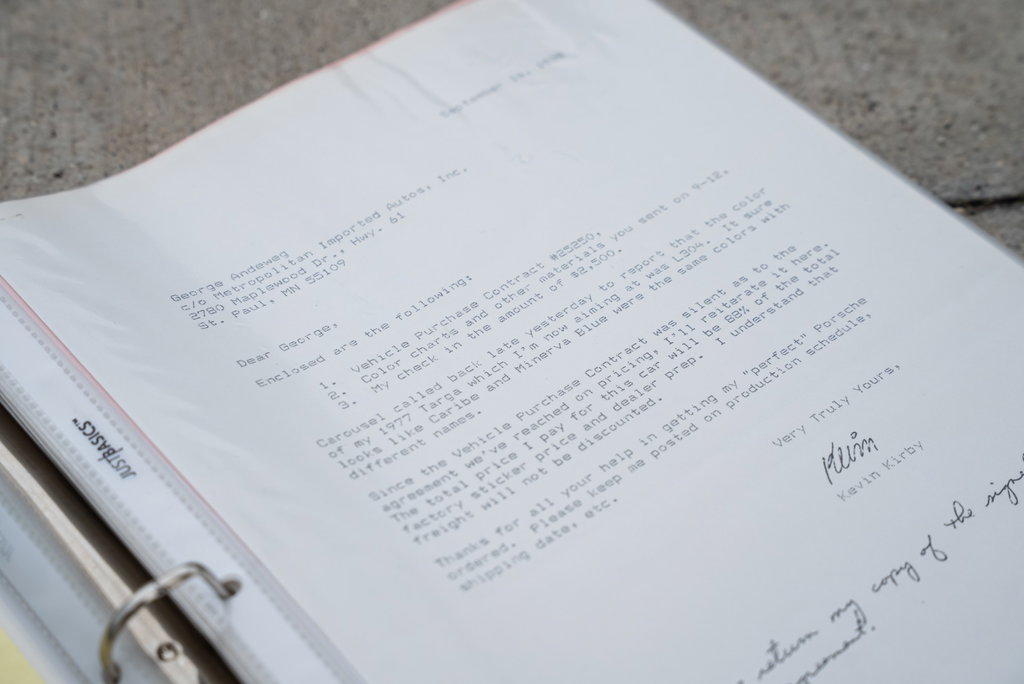 September
George Andeweg
c/o Metropolitan Imported Autos, Inc.
2780 Maplewood Dr., Hwy. 61
St. Paul, MN 55109
Dear George,
Enclosed are the following:
1. Vehicle Purchase Contract #25250,
2. Color charts and other materials you sent on 9-12,
3. My check in the amount of $2,500.
Carousel called back late yesterday to report that the color
of my 1977 Targa which I'm now aiming at was L304. It sure
looks like Caribe and Minerva Blue were the same colors with
different names.
Since the Vehicle Purchase Contract was silent as to the
agreement we've reached on pricing, I'll reiterate it here.
The total price I pay for this car will be 88% of the total
factory sticker price and dealer prep. I understand that
freight will not be discounted.
Thanks for all your help in getting my "perfect" Porsche
ordered. Please keep me posted on production schedule,
shipping date, etc.
Very Truly Yours,
Kevin
Kevin Kirby
return my copy of the signe
JUST BASICS™